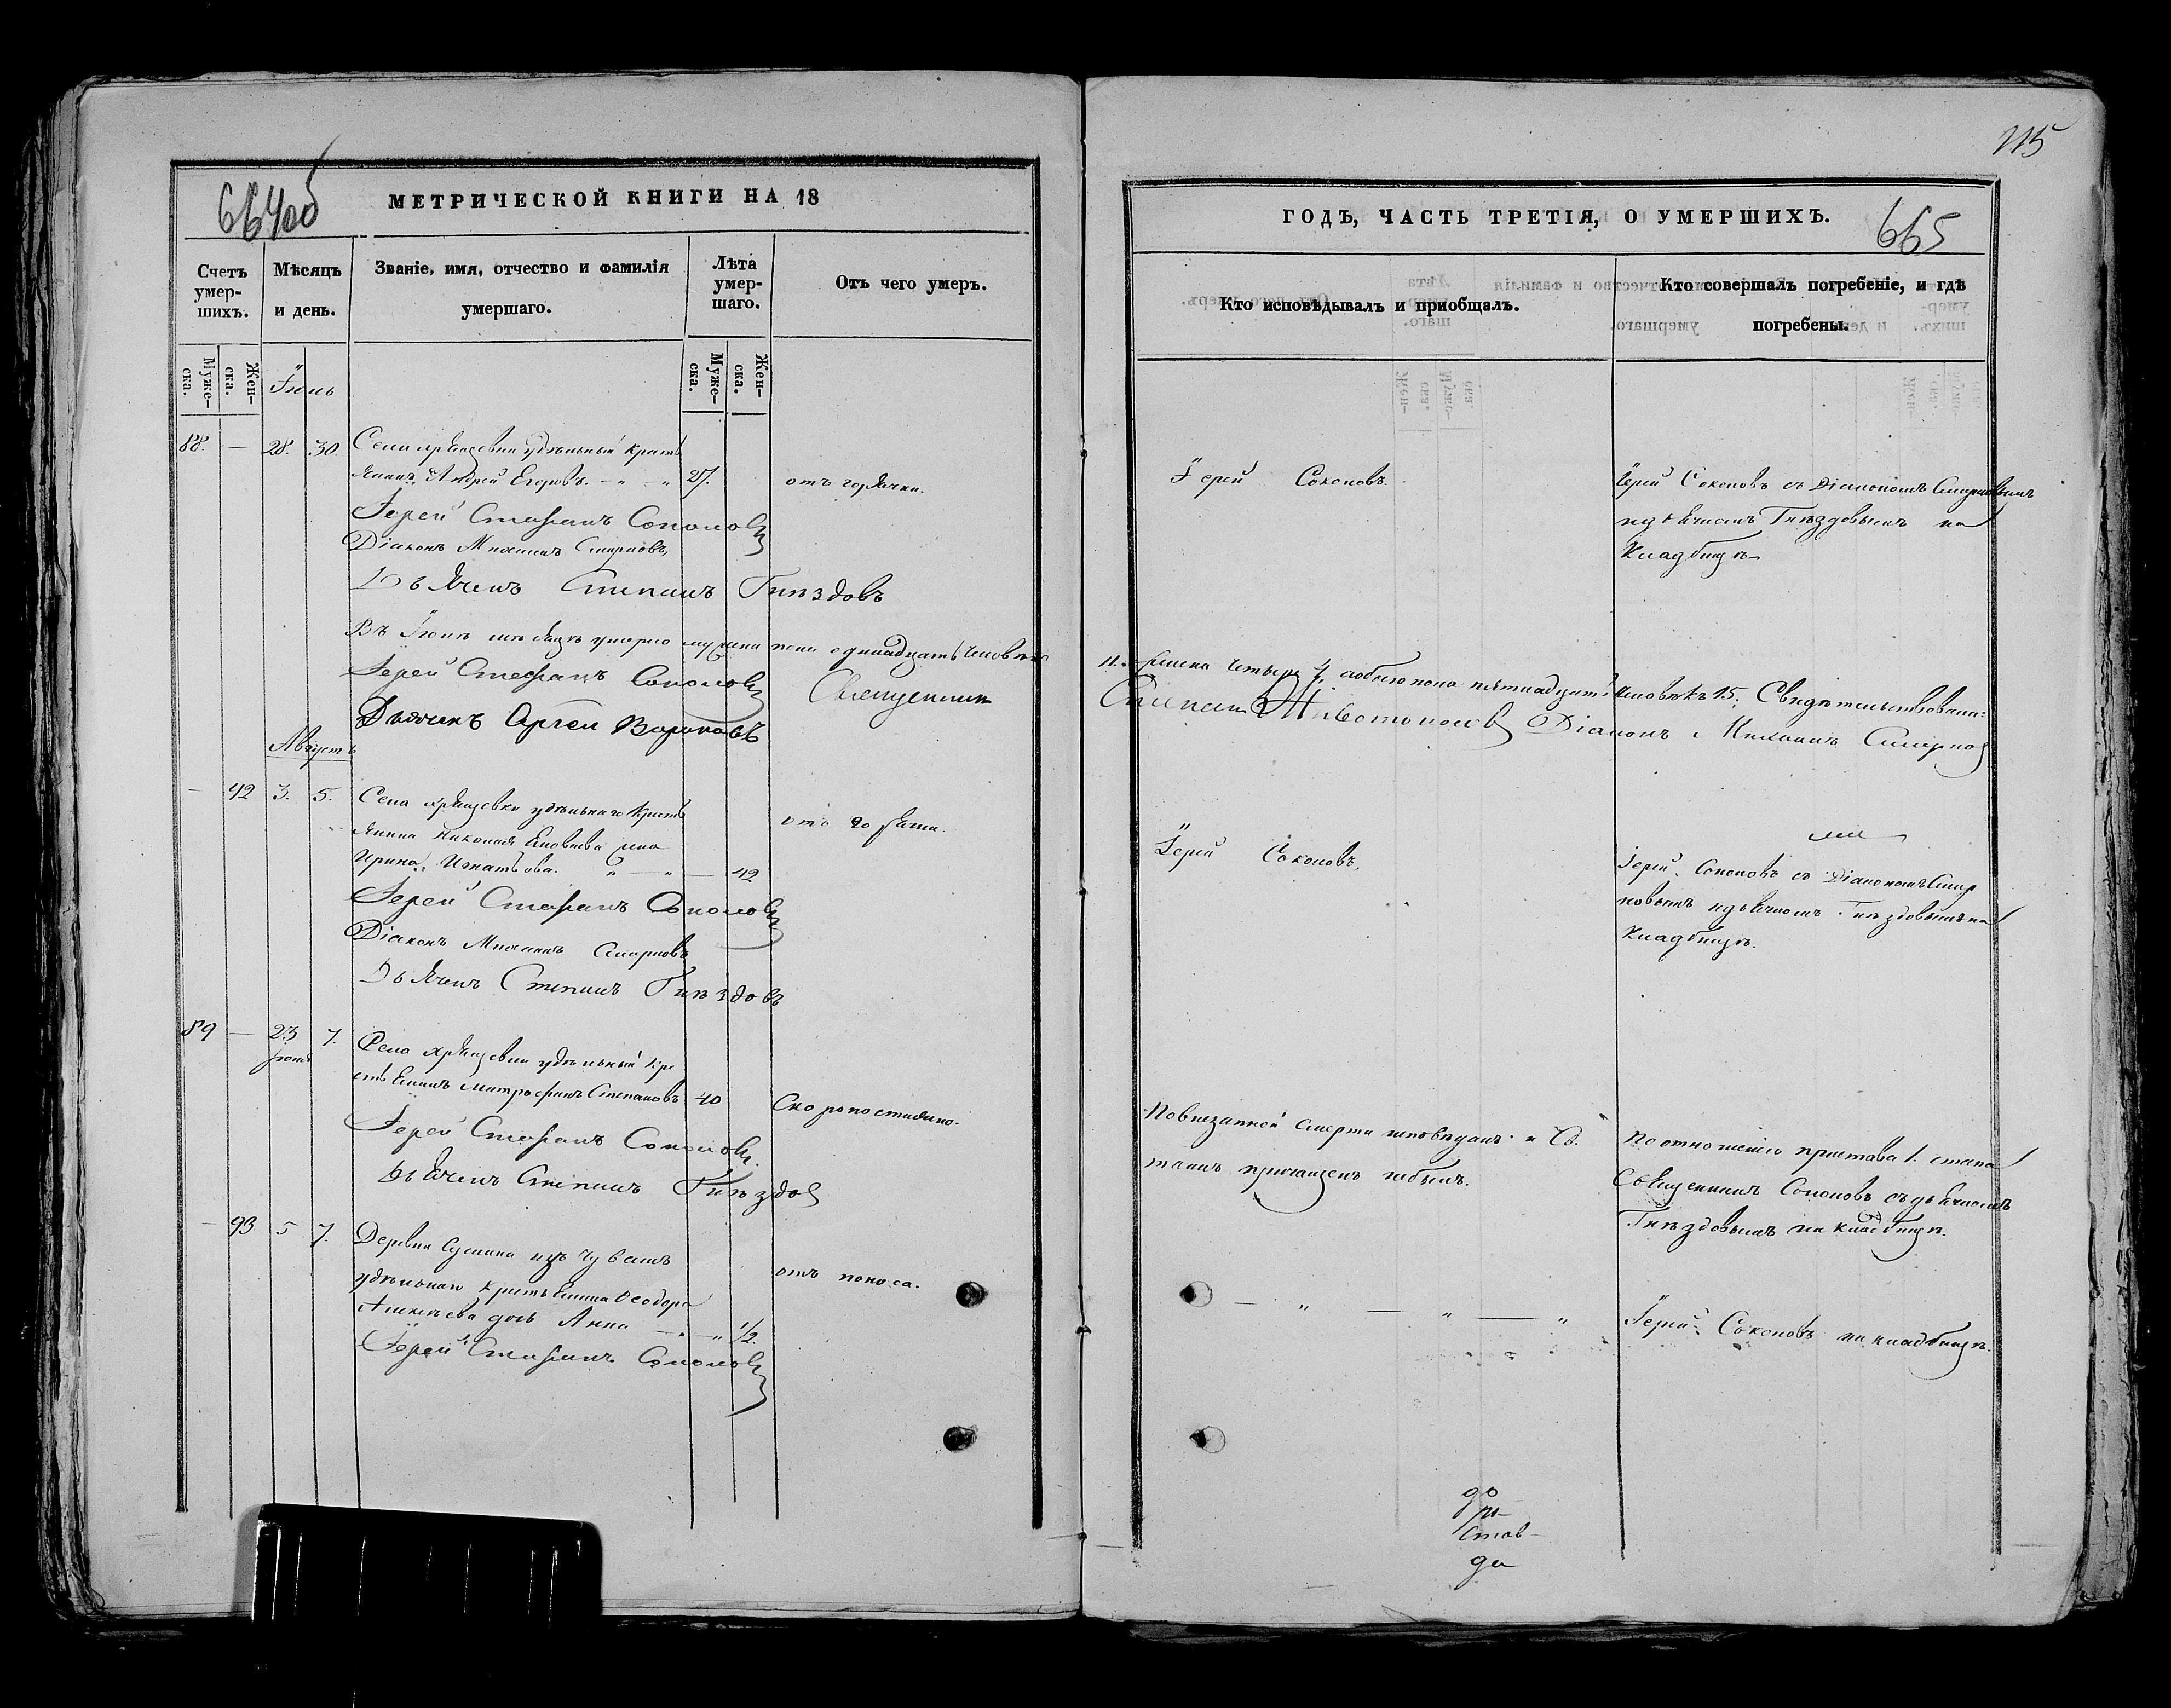 664об
МЕТРИЧЕСКОЙ КНИГИ НА 18
Счетъ умер-шихъ.
Мѣсяцъ и день.
Званіе, имя, отчество и фамилія умершаго.
Лѣта умер-шаго.
Отъ чего умеръ.
Муже-ска.
Жен-ска.
Муже-ска.
Жен-ска.
Іюль
88. — 28. 30. Села Хрящевки удѣльный кресть
янинъ Андрей Егоровъ. — " — " 27. отъ горячки.
Іерей Стефанъ Соколовъ
Діаконъ Михаилъ Смирновъ,
Дьячекъ Степанъ Гнѣздовъ
Въ Іюлѣ мѣсяцѣ умерло мужеска пола одинадцать человѣкъ
Іерей Стефанъ Соколовъ Священникъ
Дьячекъ Сергей Вороновъ
Августъ
— 92 3. 5. Села Хрящевки удѣльнаго кресть
янина Николая Яковлева жена
Ирина Игнатьева. " — " — 42 отъ горячки.
Іерей Стефанъ Соколовъ
Діаконъ Михаилъ Смирновъ
Дьячекъ Степанъ Гнѣздовъ
89 — 23 7. Села Хрящевки удѣльный кре
Іюля
стьянинъ Митрофанъ Степановъ 40 Скоропостижно.
Іерей Стефанъ Соколовъ.
Дьячекъ Степанъ Гнѣздовъ
— 93 5 7. Деревни Сускана изъ Чувашъ
удѣльнаго крестьянина Ѳеодора отъ поноса.
Алексѣева дочь Анна — " — " 1/2.
Іерей Стефанъ Соколовъ
115
ГОДЪ, ЧАСТЬ ТРЕТІЯ, О УМЕРШИХЪ.
665
Кто исповѣдывалъ и приобщалъ.
Кто совершалъ погребеніе, и гдѣ погребены.
Іерей Соколовъ.
Іерей Соколовъ съ Діакономъ Смирновымъ
и дьячкомъ Гнѣздовымъ на
кладбищѣ
11. женска четыре 4, обоего пола пятнадцать человѣкъ 15; Свидѣтельствовали:
Степанъ Животоносовъ Діаконъ Михаилъ Смирновъ
Іерей Соколовъ,
Іерей Соколовъ съ Діакономъ Смир
новымъ и дьячкомъ Гнѣздовымъ на
кладбищѣ.
По внезапной смерти исповѣданъ и Св.
таинъ причащенъ небылъ.
По отношенію пристава 1. стана
Священникъ Соколовъ съ дьячкомъ
Гнѣздовымъ на кладбищѣ.
— " — " — "
Іерей Соколовъ на кладбищѣ.